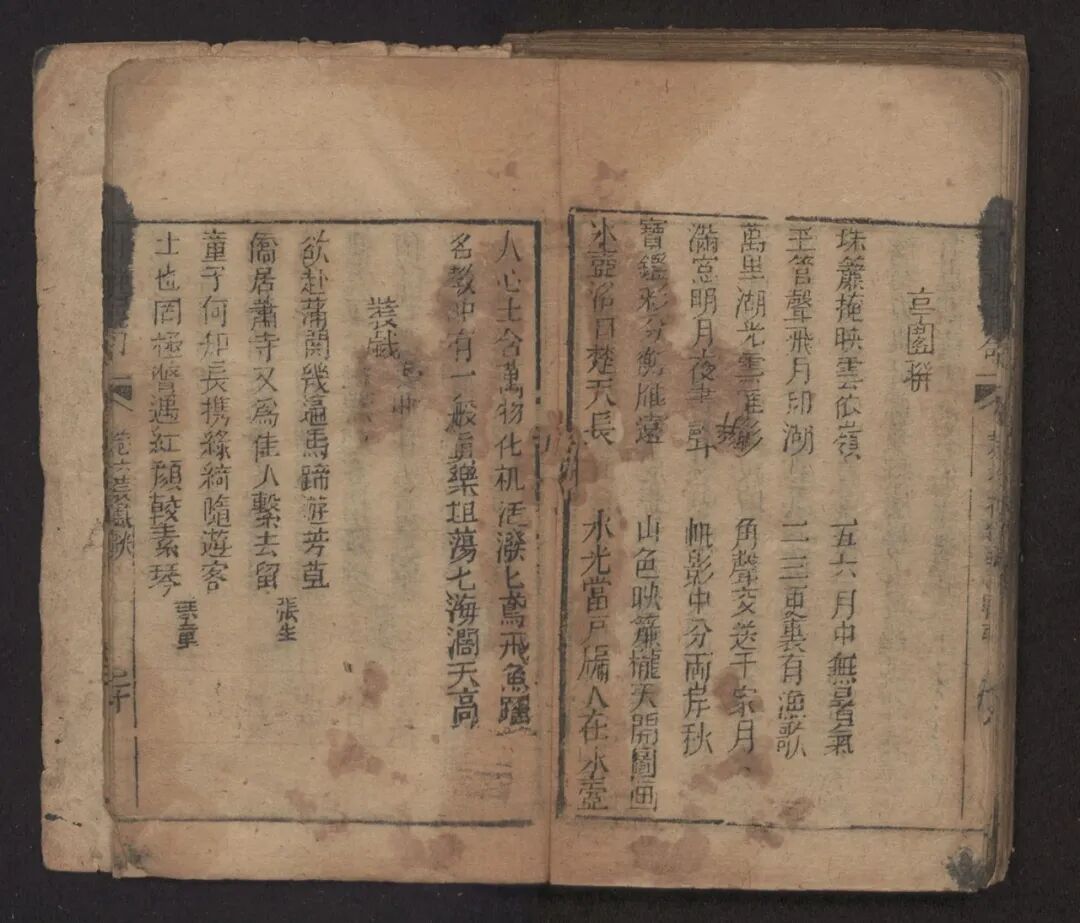 亭園類
珠簾掩映雲依嶺 五六月中無暑氣
玉管聲飛月印湖 二三更裏有漁歌
萬里湖光雲 影 角聲 送千家月
滿窓明月夜 聲 帆影中分兩岸秋
寶鑑彩分衡雁遠 山色映簾櫳天開圖画
氷壺浴日楚天長 水光當戶牖人在氷壺
人心上含萬物化机活潑乚鳶飛魚躍
名教中有一般眞樂坦蕩乚海濶天高
裝戲
欲赴蒲關幾遍馬蹄遊芳草
僑居蕭寺又爲佳人繫去留 張生
童子何知長携綠綺隨遊客
士也罔極曾遇紅顔較素琴 琴童
卷六裝戲联